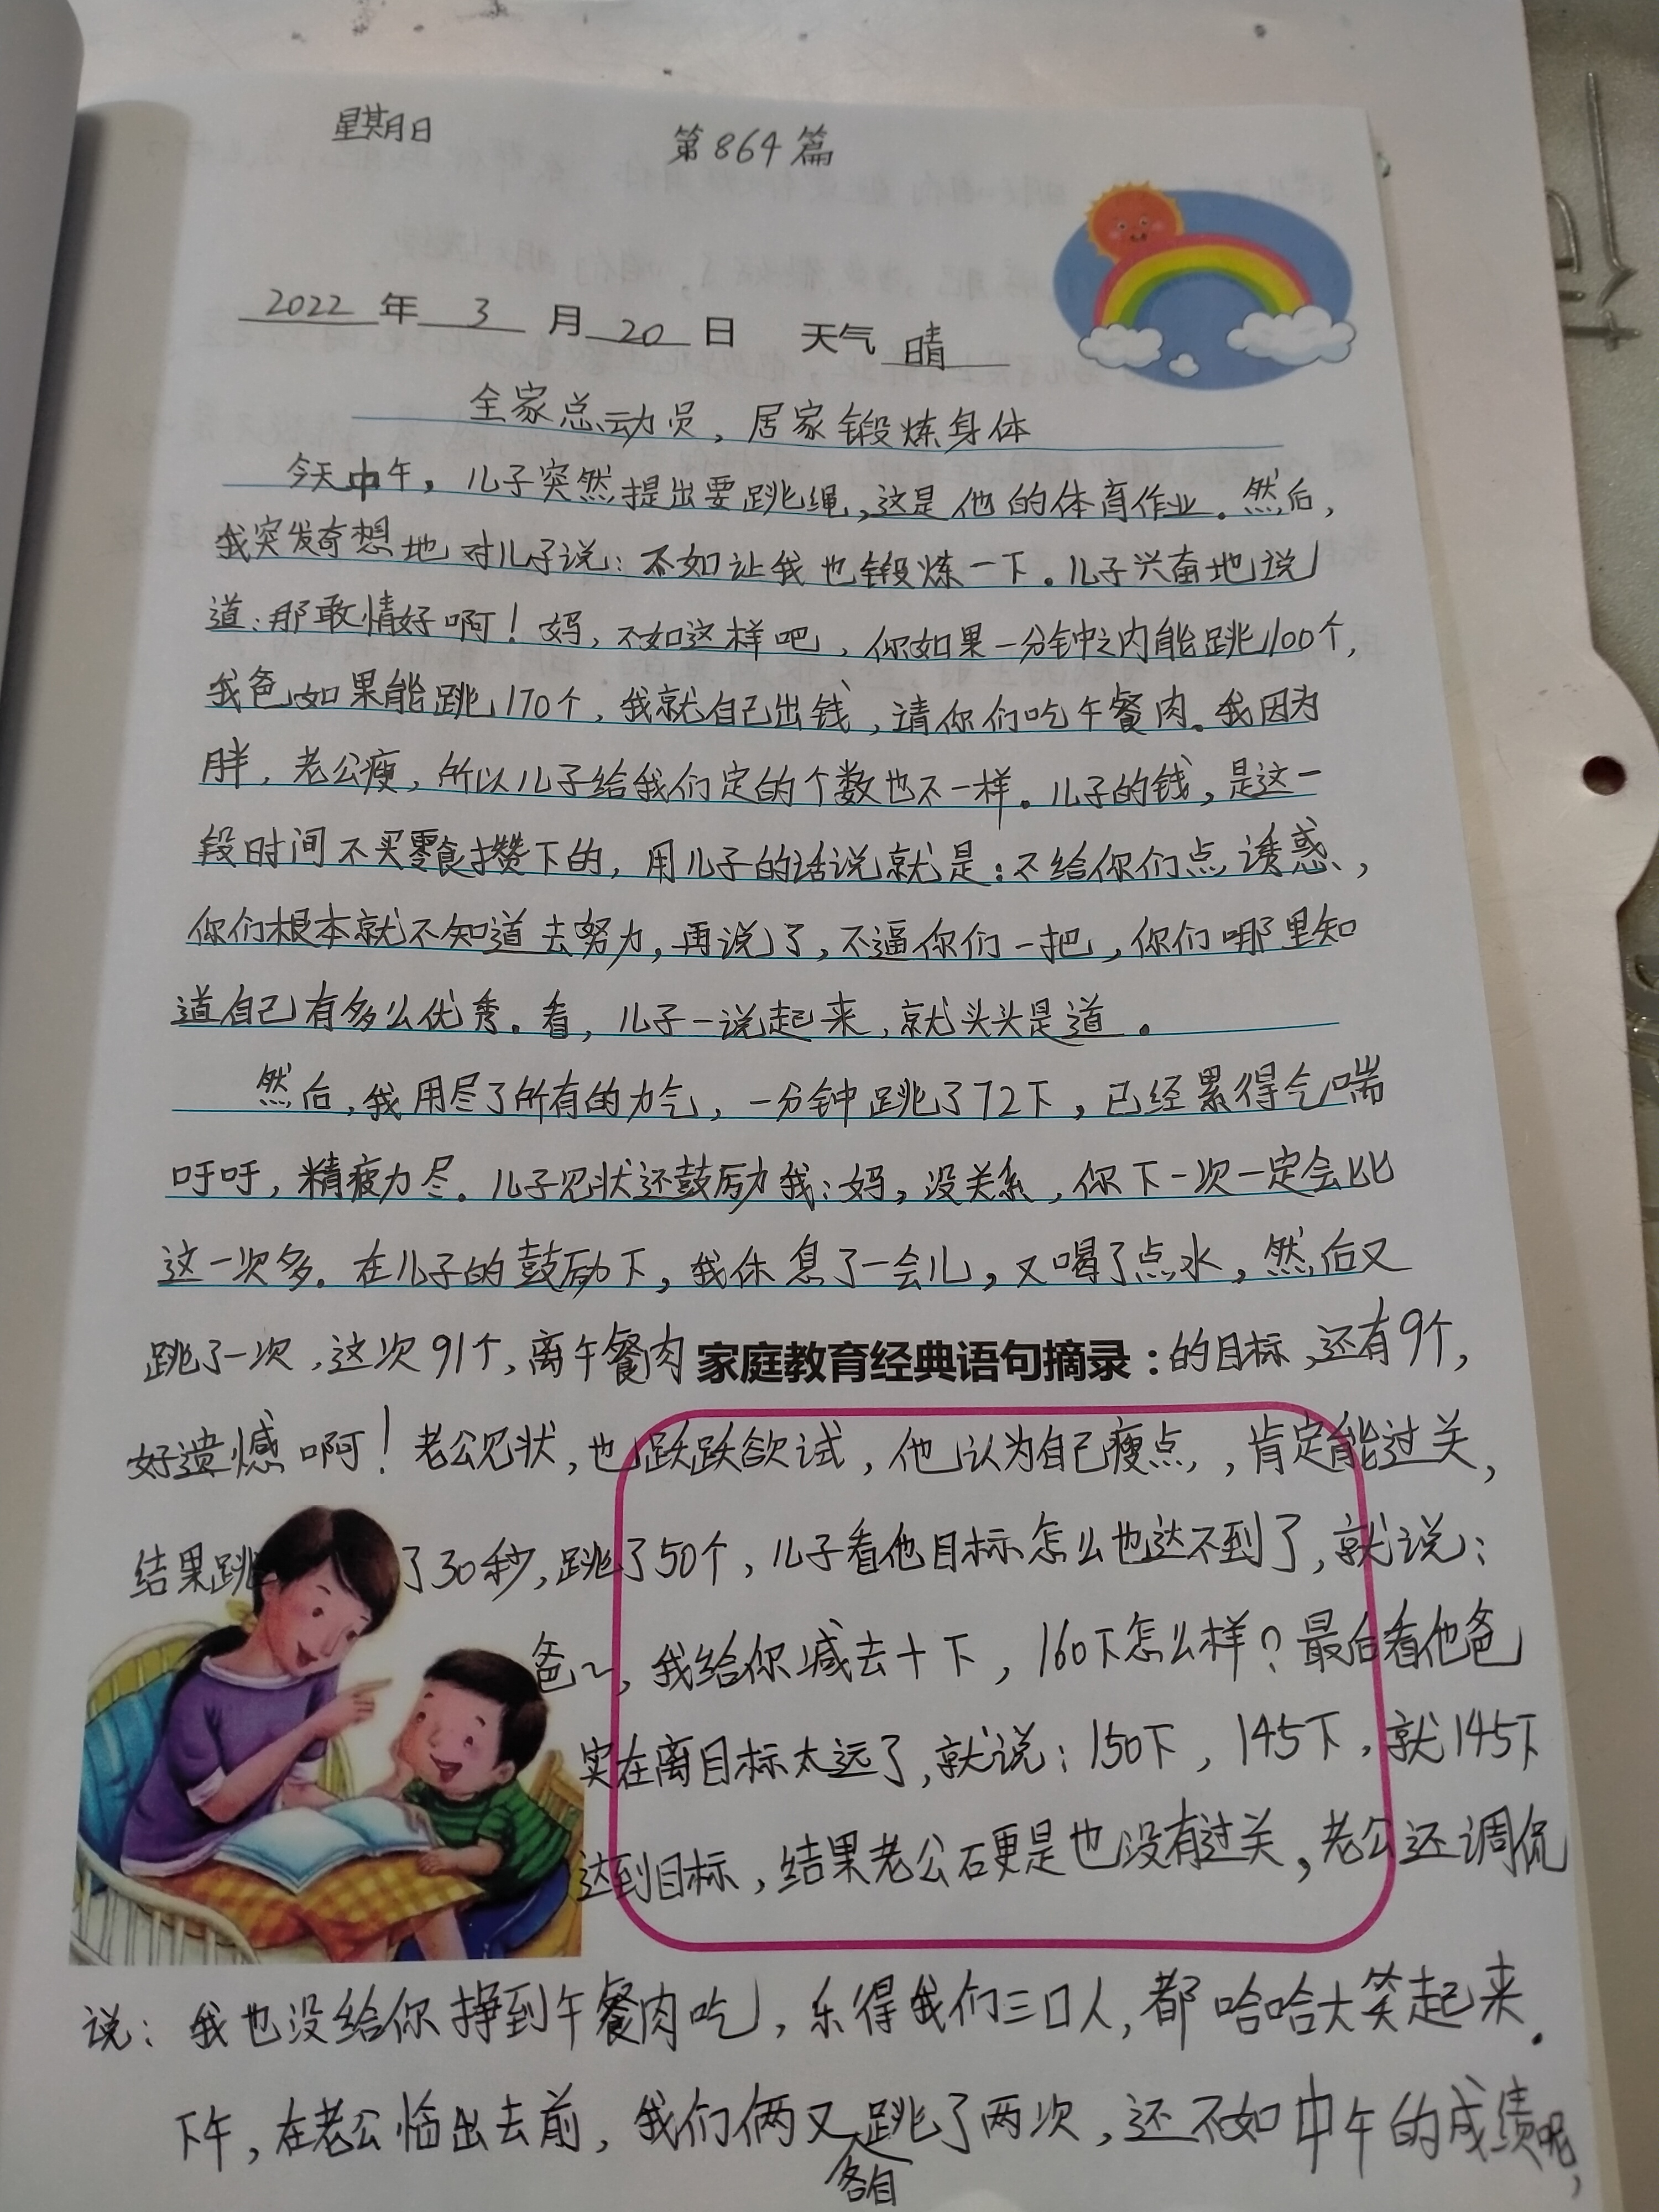 星期日 第864篇
2022年3月20日 天气 晴
全家总动员，居家锻炼身体
今天中午，儿子突然提出要跳绳，这是他的体育作业。然后，
我突发奇想地对儿子说：不如让我也锻炼一下。儿子兴奋地说
道：那敢情好啊！妈，不如这样吧，你如果一分钟之内能跳100个，
我爸如果能跳170个，我就自己出钱，请你们吃午餐肉。我因为
胖，老公瘦，所以儿子给我们定的个数也不一样。儿子的钱，是这一
段时间不买零食攒下的，用儿子的话说就是：不给你们点诱惑，
你们根本就不知道去努力，再说了，不逼你们一把，你们哪里知
道自己有多么优秀。看，儿子一说起来，就头头是道。
然后，我用尽了所有的力气，一分钟跳了72下，已经累得气喘
吁吁，精疲力尽。儿子见状还鼓励我：妈，没关系，你下一次一定会比
这一次多。在儿子的鼓励下，我休息了一会儿，又喝了点水，然后又
跳了一次，这次91个，离午餐肉 家庭教育经典语句摘录：的目标，还有9个，
好遗憾啊！老公见状，也跃跃欲试，他认为自己瘦点，肯定能过关，
结果跳了30秒，跳了50个，儿子看他目标怎么也达不到了，就说：
爸~，我给你减去十下，160下怎么样？最后看他爸
实在离目标太远了，就说：150下，145下，就145下
达到目标，结果老公硬是也没有过关，老公还调侃
说：我也没给你挣到午餐肉吃，乐得我们三口人，都哈哈大笑起来。
下午，在老公临出去前，我们俩又各自跳了两次，还不如中午的成绩呢，